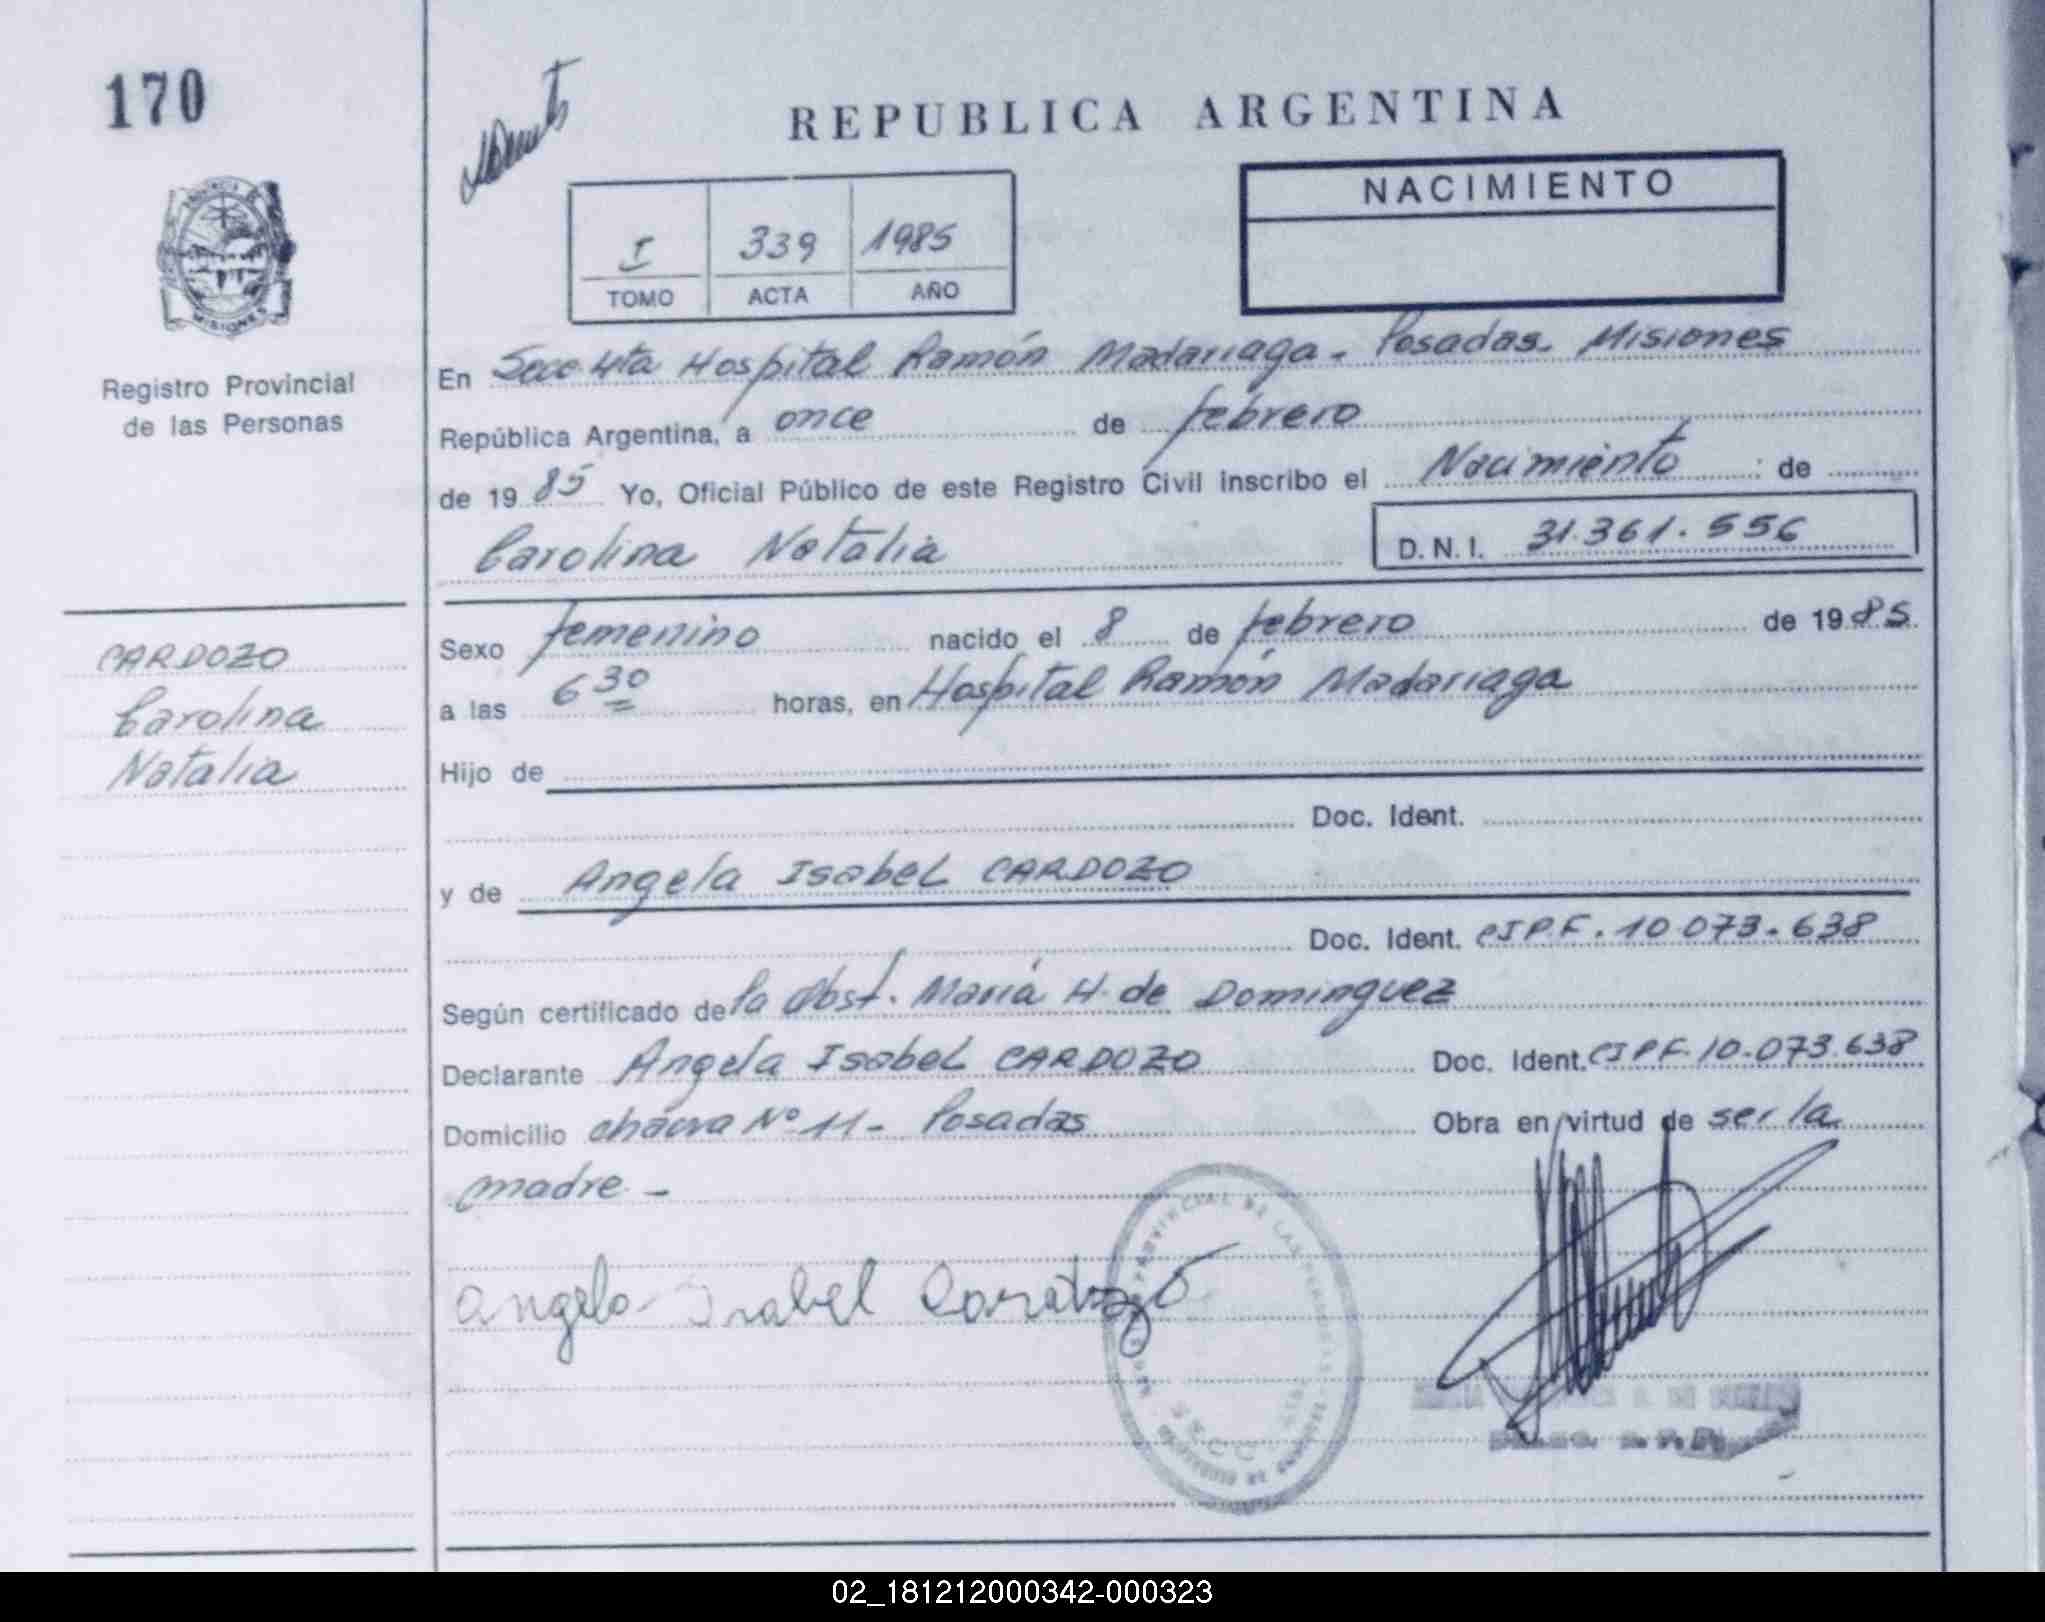 170
REPUBLICA ARGENTINA
NACIMIENTO
I 339 1985
TOMO ACTA AÑO
MISIONES
Registro Provincial
de las Personas
En Secc 4ta Hospital Ramón Madariaga. Posadas. Misiones
República Argentina, a once de febrero
de 1985 Yo, Oficial Público de este Registro Civil inscribo el Nacimiento : de
Carolina Natalia D.N.I. 31.361.556
CARDOZO
Carolina
Natalia
Sexo femenino nacido el 8 de febrero de 1985.
a las 6 30 horas, en Hospital Ramón Madariaga
Hijo de
Doc. Ident.
y de Angela Isabel CARDOZO
Doc. Ident. CIPF. 10.073.638
Según certificado de la Obst. María H. de Dominguez
Declarante Angela Isabel CARDOZO Doc. Ident. CIPF. 10.073.638
Domicilio chacra Nº 11 - Posadas Obra en virtud de ser la
madre -
Angela Isabel Cardozo
02_181212000342-000323